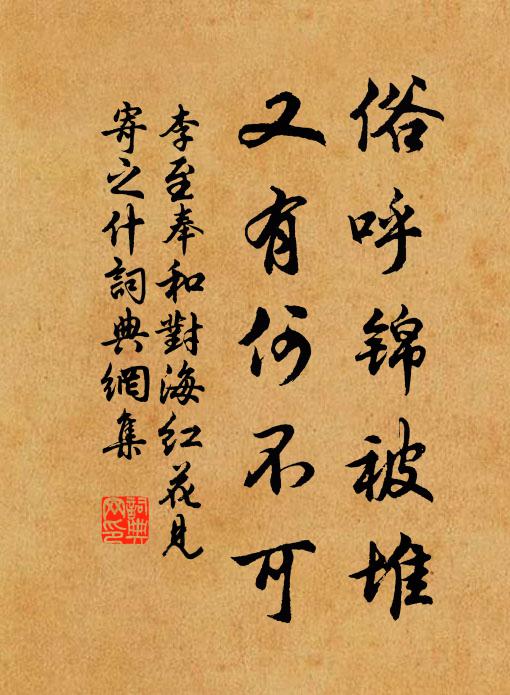 俗呼锦被堆
又有何不可
李至奉和對海红花見
寄之什詞典網集
詞典网印